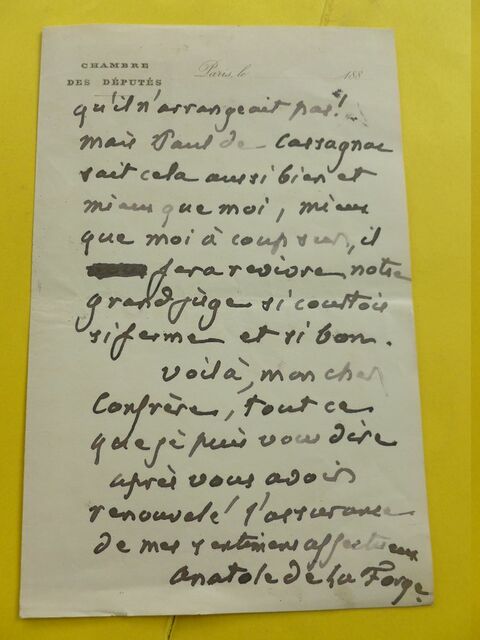 CHAMBRE
DES DÉPUTÉS
Paris, le 188
qu'il n'arrangeait pas!
mais Paul de Cassagnac
sait cela aussi bien et
mieux que moi, mieux
que moi à coup sur, il
fera revivre notre
grand juge si courtois
si ferme et si bon.
Voilà, mon cher
Confrère, tout ce
que je puis vous dire
après vous avoir
renouvelé l'assurance
de mes sentimens affectueux
Anatole de La Forge